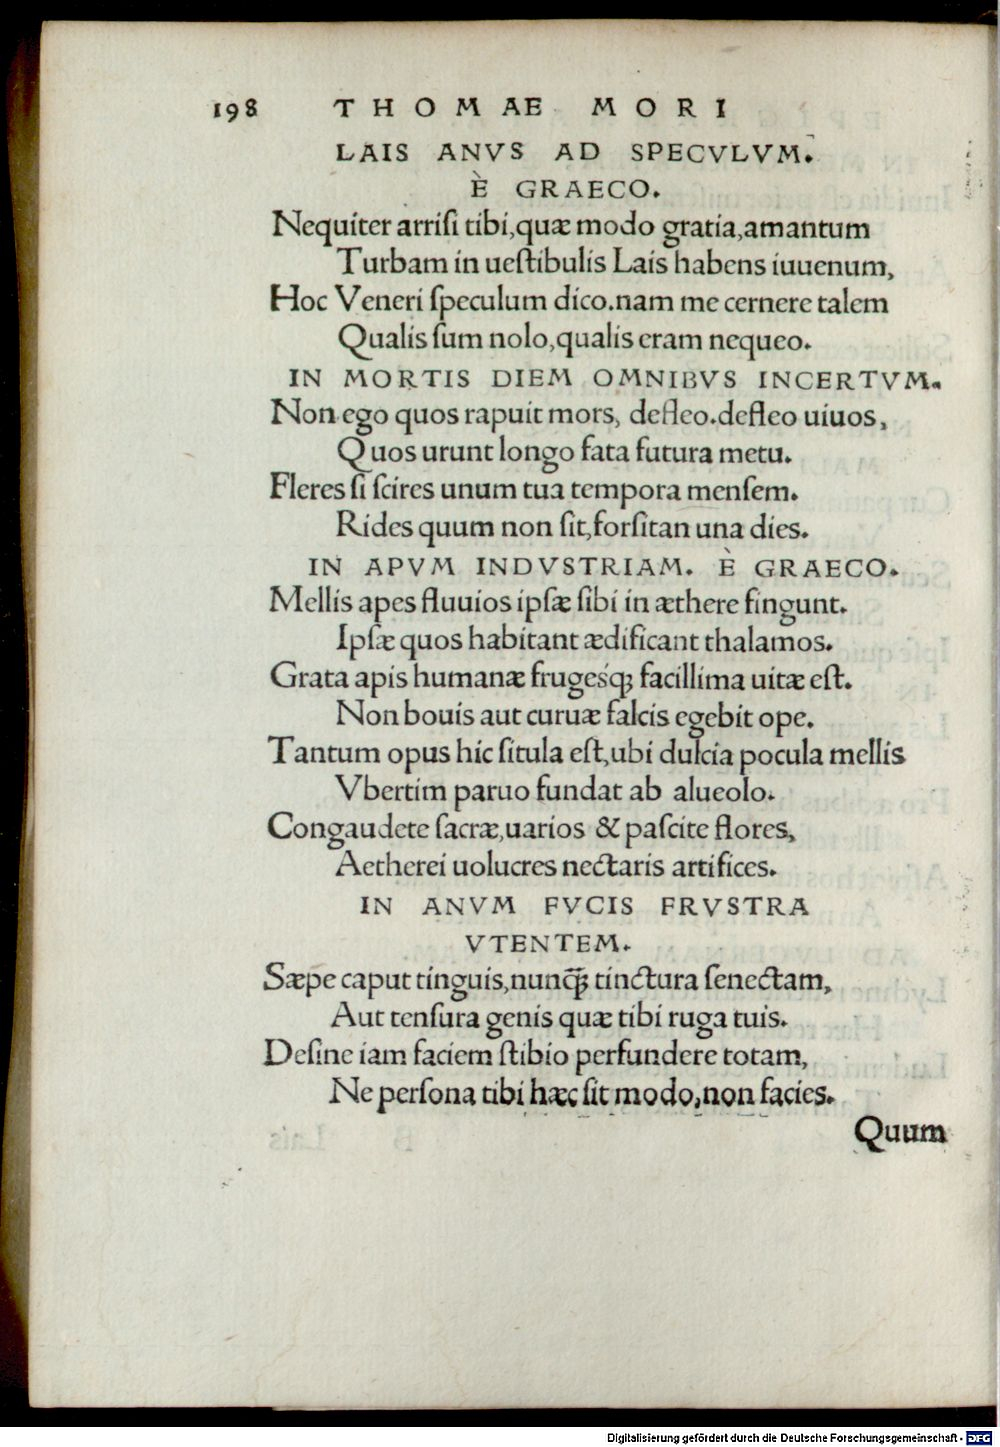 198 THOMAE MORI
LAIS ANVS AD SPECVLVM.
È GRAECO.
Nequiter arrisi tibi,quæ modo gratia,amantum
Turbam in uestibulis Lais habens iuuenum,
Hoc Veneri speculum dico.nam me cernere talem
Qualis sum nolo,qualis eram nequeo.
IN MORTIS DIEM OMNIBVS INCERTVM.
Non ego quos rapuit mors, defleo.defleo uiuos,
Quos urunt longo fata futura metu.
Fleres si scires unum tua tempora mensem.
Rides quum non sit,forsitan una dies.
IN APVM INDVSTRIAM. È GRAECO.
Mellis apes fluuios ipsæ sibi in æthere fingunt.
Ipsæ quos habitant ædificant thalamos.
Grata apis humanæ frugesq́; facillima uitæ est.
Non bouis aut curuæ falcis egebit ope.
Tantum opus hic situla est,ubi dulcia pocula mellis
Vbertim paruo fundat ab alueolo.
Congaudete sacræ,uarios & pascite flores,
Aetherei uolucres nectaris artifices.
IN ANVM FVCIS FRVSTRA
VTENTEM.
Sæpe caput tinguis,nunq̃; tinctura senectam,
Aut tensura genis quæ tibi ruga tuis.
Desine iam faciem stibio perfundere totam,
Ne persona tibi hæc sit modo,non facies.
Quum
Digitalisierung gefördert durch die Deutsche Forschungsgemeinschaft - DFG